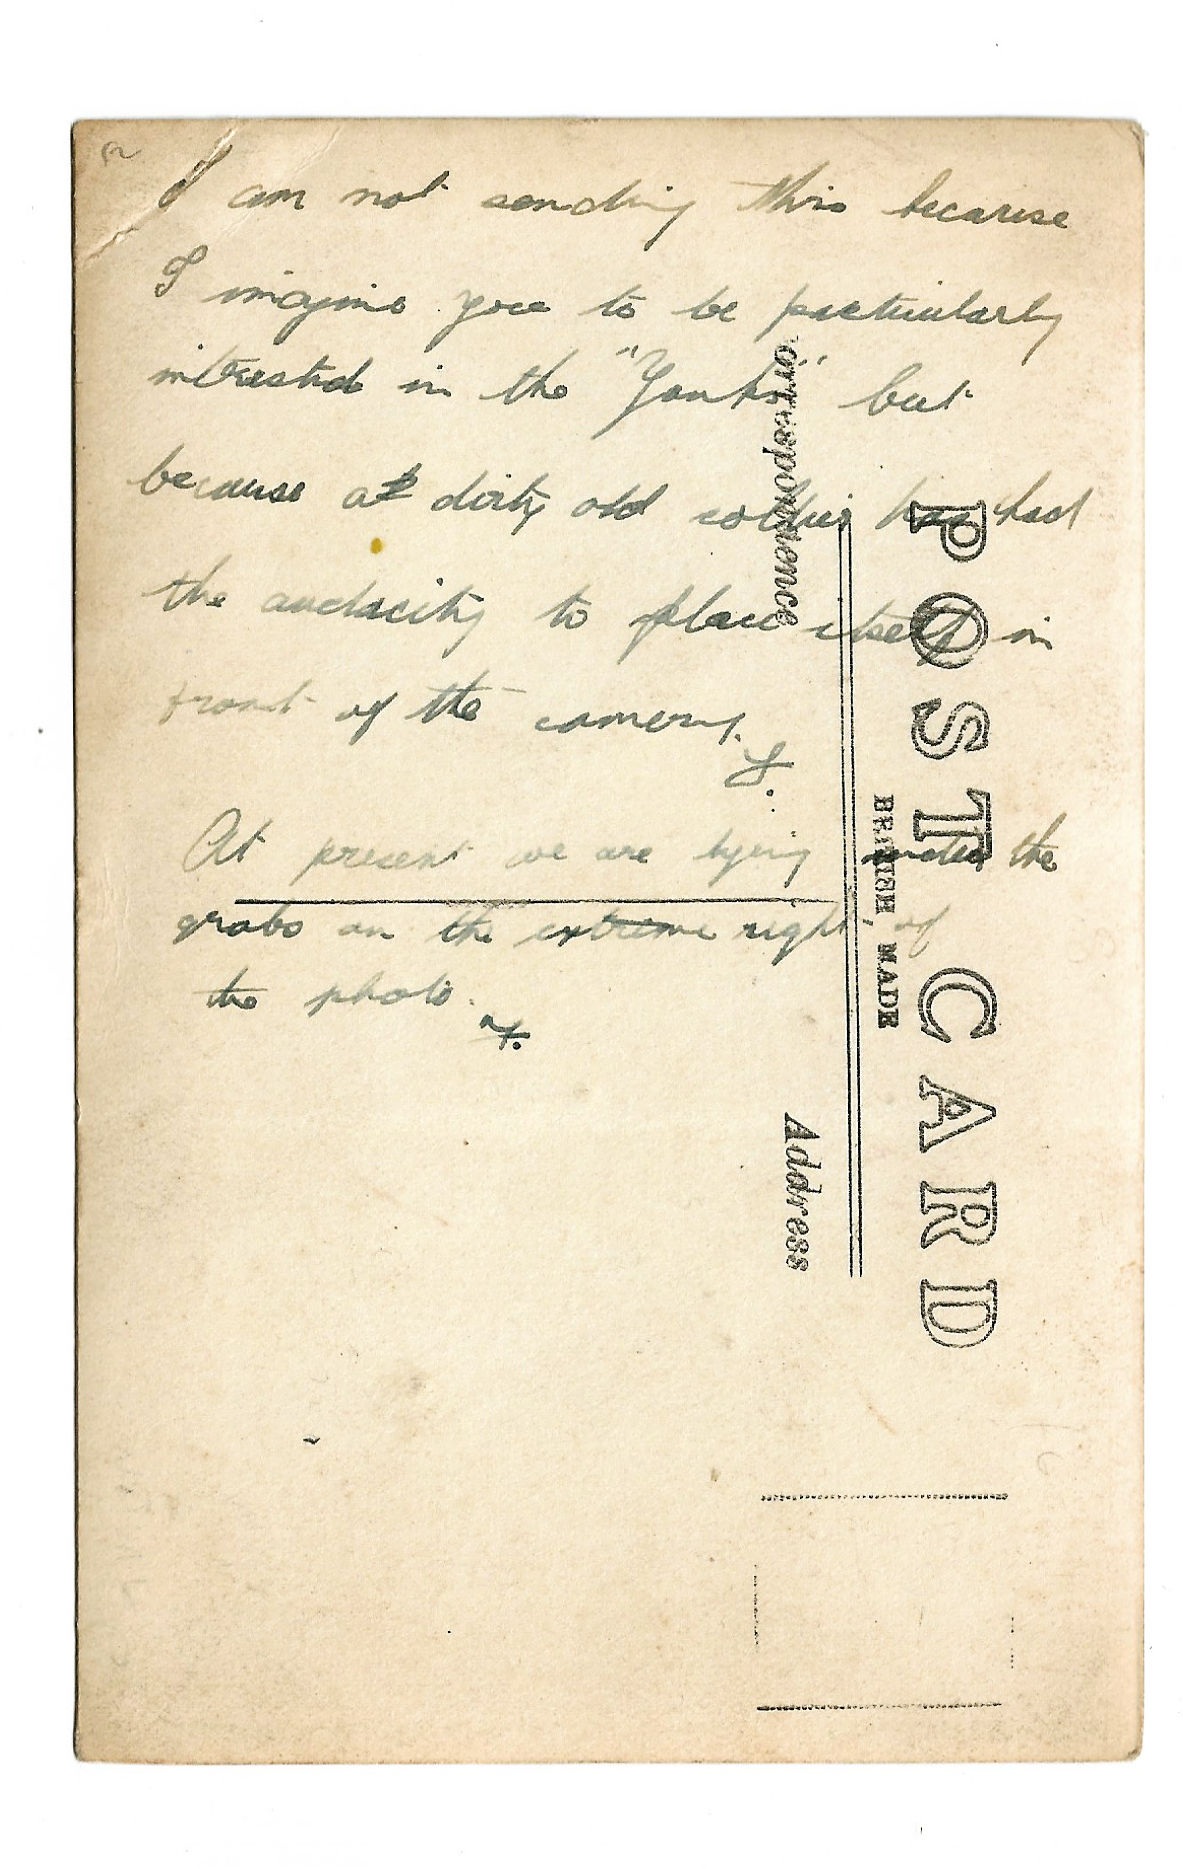 I am not sending this because
I imagine you to be particularly
intrested in the "Yanks" but
because a dirty old collier has had
the audacity to place itself in
front of the camera.
At present we are lying under the
grabs on the extreme right of
the photo.
POST CARD
BRITISH MADE
orrespondence
Address